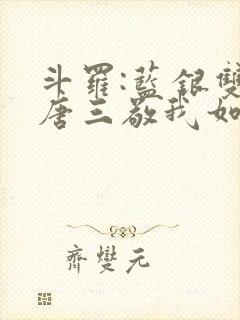 斗羅:藍銀雙
唐三敬我如
齊燮元